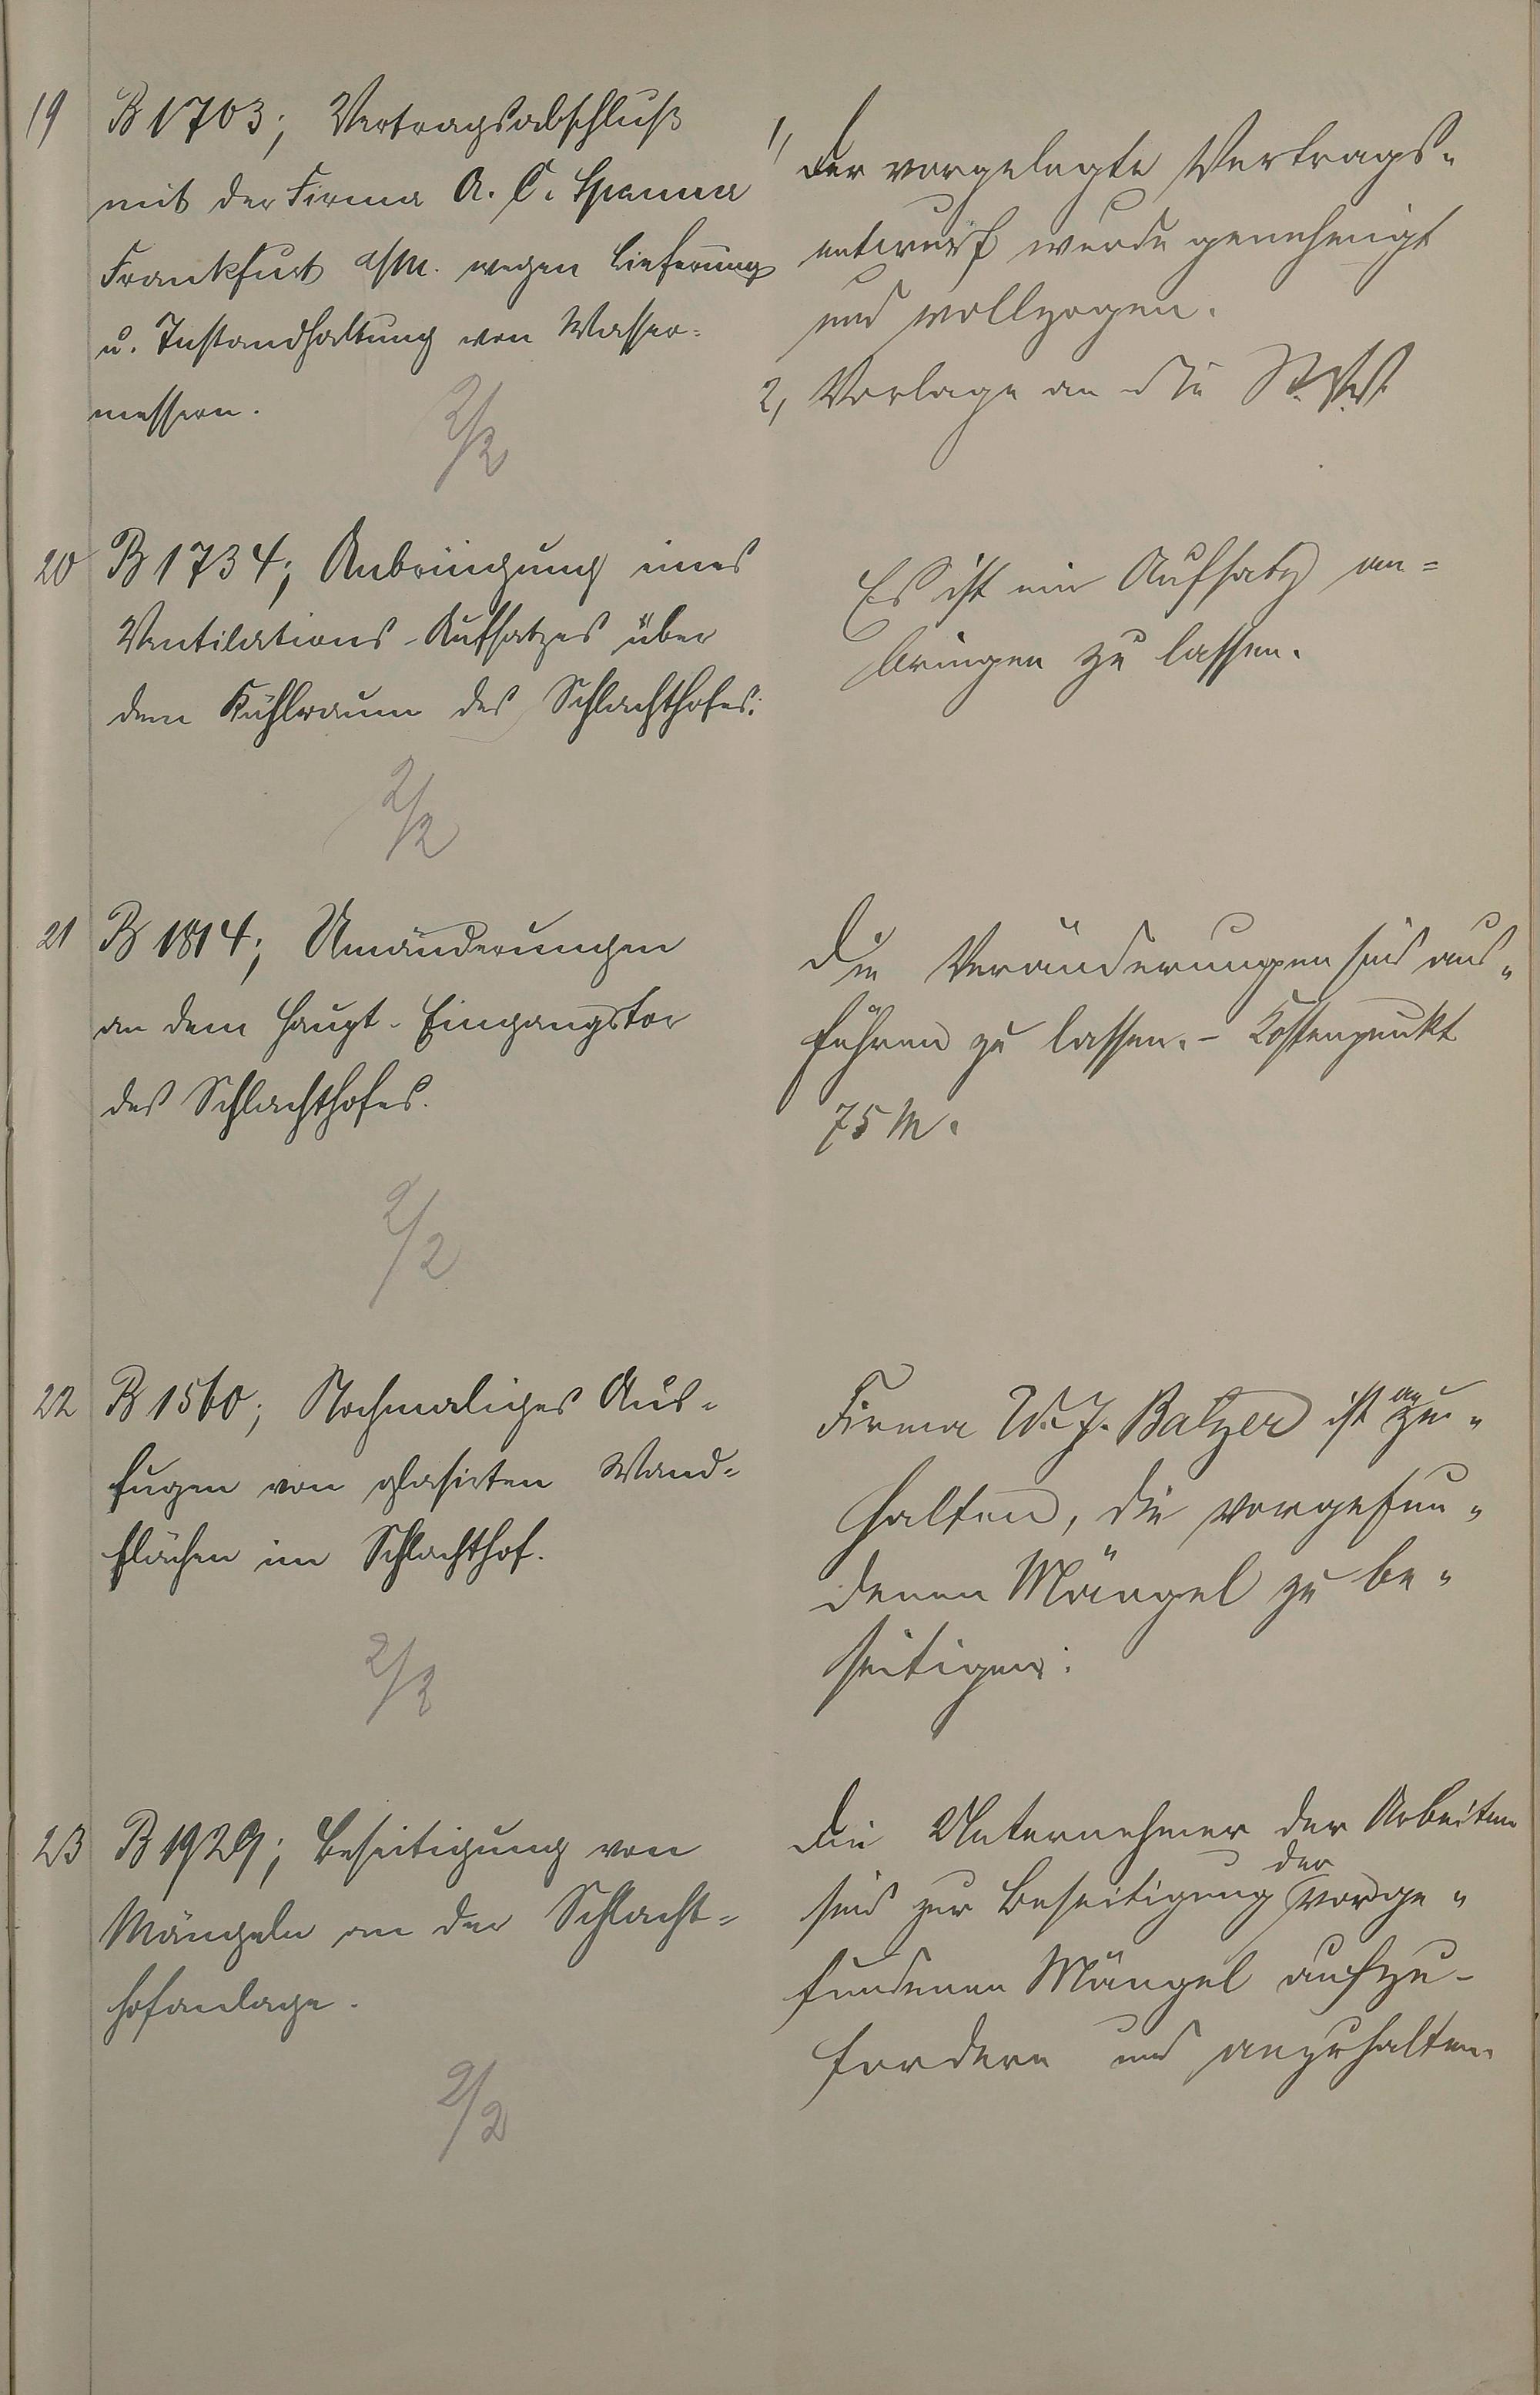 19 B 1703; Vertragsabschluß
mit der Firma A. C. Spanner
Frankfurt a/M. wegen Lieferung
u. Instandhaltung von Wasser-
messern.
2/2
1, Der vorgelegte Vertrags-
entwurf wurde genehmigt
und vollzogen.
2, Vorlage an die St.V.V.
20 B 1734; Anbringung eines
Ventilations-Aufsatzes über
dem Kühlraum des Schlachthofes.
2/2
Es ist ein Aufsatz an-
bringen zu lassen.
21 B 1814; Umänderungen
an dem Haupt-Eingangstor
des Schlachthofes.
2/2
Die Veränderungen sind aus-
führen zu lassen. - Kostenpunkt
75 M.
22 B 1560; Nochmaliges Aus-
fugen von glasirten Wand-
flächen im Schlachthof.
2/2
Firma W. J. Balzer ist anzu-
halten, die vorgefun-
denen Mängel zu be-
seitigen.
23 B 1929; Beseitigung von
Mängeln an der Schlacht-
hofanlage.
2/2
Die Unternehmer der Arbeiten
sind zur Beseitigung der vorge-
fundenen Mängel aufzu-
fordern und anzuhalten.